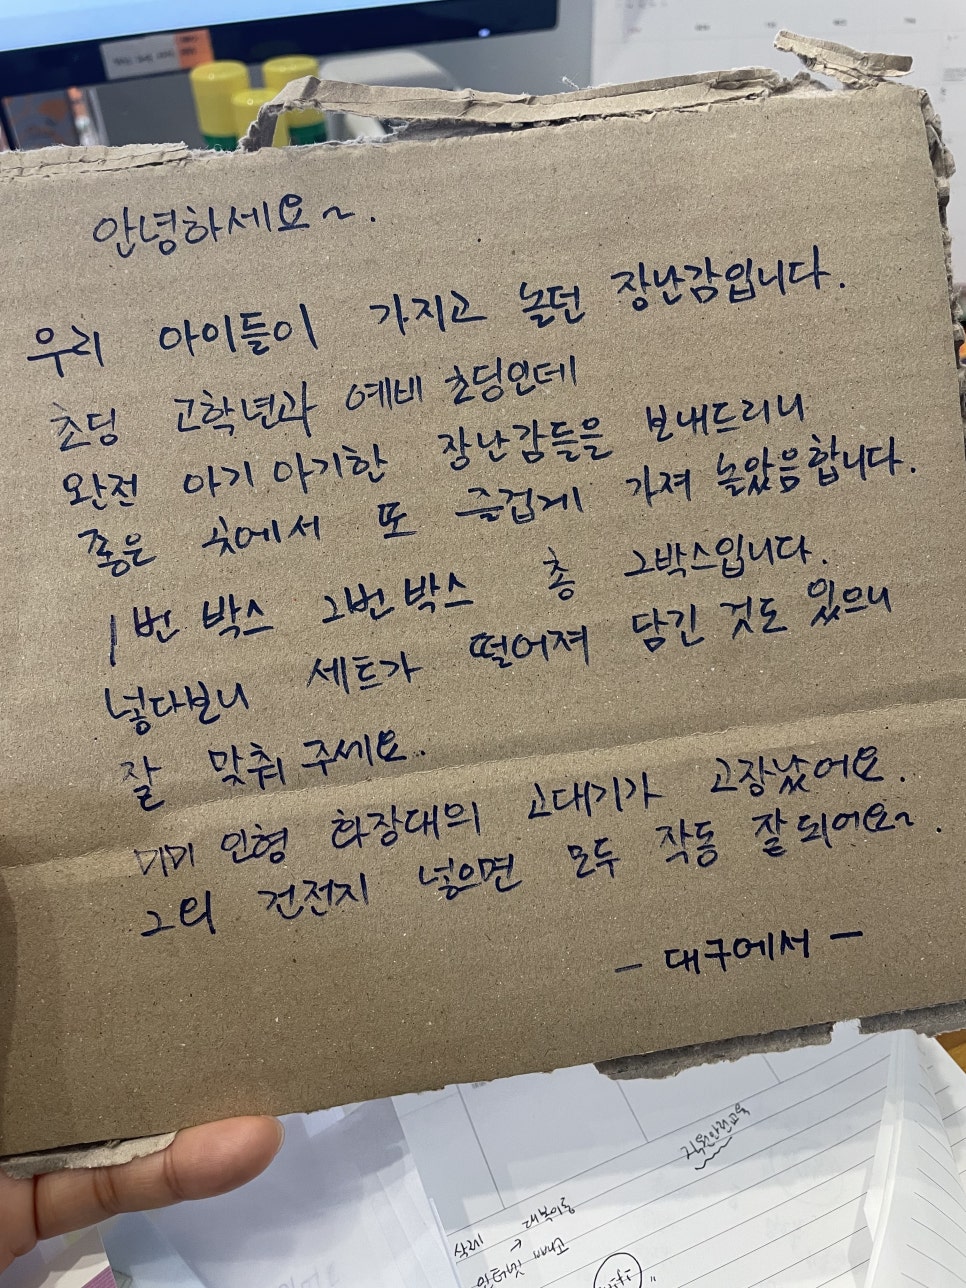 안녕하세요~.
우리 아이들이 가지고 놀던 장난감입니다.
초딩 고학년과 예비 초딩인데
완전 아기아기한 장난감들을 보내드리니
좋은 곳에서 또 즐겁게 가져 놀았음합니다.
1번 박스 2번 박스 총 2박스입니다.
넣다보니 세트가 떨어져 담긴 것도 있으니
잘 맞춰 주세요.
미미 인형 화장대의 고대기가 고장났어요.
그외 건전지 넣으면 모두 작동 잘되어요~.
- 대구에서 -
직원안전교육
삭제 → 대북이동